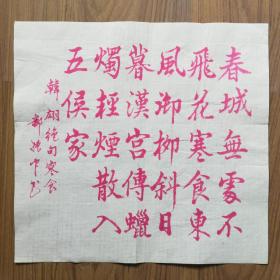 春城無處不
飛花寒食東
風御柳斜日
暮漢宮傳蠟
燭輕煙散入
五侯家
韓翃絶句寒食